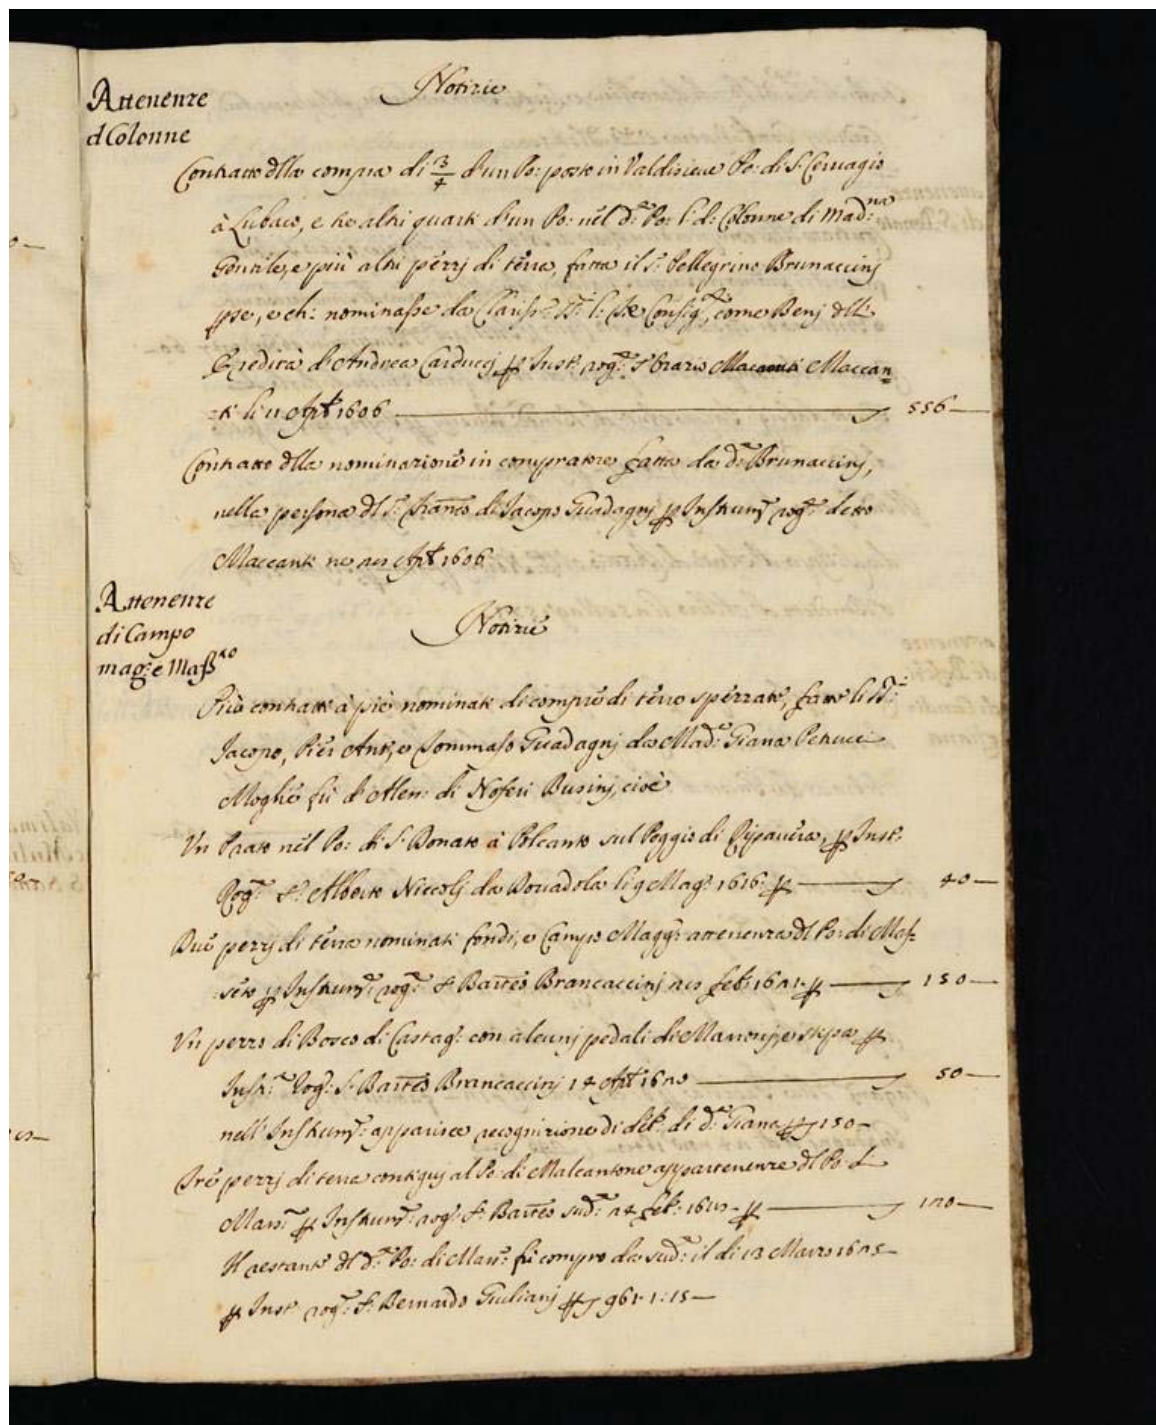 Attenenze
d Colonne
Notizie
Contratto dlla compra di 3/4 d'un Po: posto in Valdisieue Po: di S. Ceruagio
à Lubaco, e tre altri quarti d'un Po: nél do. Po: l: d: Colonne di Mad:na
Gentile, e più altri pézzj di térra, fatta il S.r Pellegrino Brunaccinj
pse, e ch: nominasse da Consig.ri, come Benj dll:
Eredità di Andrea Carduccj p Inst: rog: S. Orazio Maccan
ti li 11 Aple 1606 556—
Contratto dlla nominazioné in compratore fatta da do. Brunaccinj,
nella persona dl S.r Franco di Jacopo Guadagnj p Instrum.to rog: detto
Maccanti Aple 1606
Attenenze
di Campo
mag.e Mass.to
Notizie
Più contratti à piè nominati di compré di térre spézzate, fatte li SS.ri
Jacopo, Piér Anto, e Tommaso Guadagnj da Mad.a Giana Petrucci
Moglié fù di Aless: di Noferi Businj, cioè
Un Prato nél Po: di S. Donato à Polcanto sul Poggio di Ripauéra, p Inst:
Rog: S. Alberto Niccolj da Bouadola li 9 Mag.o 1616: p 40—
Dué pezzj di térra nominati fondi, e Campo Magg.e attenenza dl Po: di Mas
séto p Instrum.to rog: S. Barteo Brancaccinj 22 feb: 1621. p 150—
Un pezzo di Bosco di Castag: con alcunj pedali di Marronj, e stipa p
Instr: Rog: S. Barteo Brancaccinj 14 Aple 1622 50—
nell' Instrum.to apparisce recognizione di deb: di da. Giana p 150—
Tré pezzj di terra contiguj al Po: di Malcantone appartenenze dl Po: d
Mass: p Instrum: rog: S. Barteo sud: 24 feb: p 120—
Il restante dl do. Po: di Mass: fù compro da sud: il di 13 Marzo 1625—
p Inst rog: S. Bernardo Giulianj p 961. 1: 15—